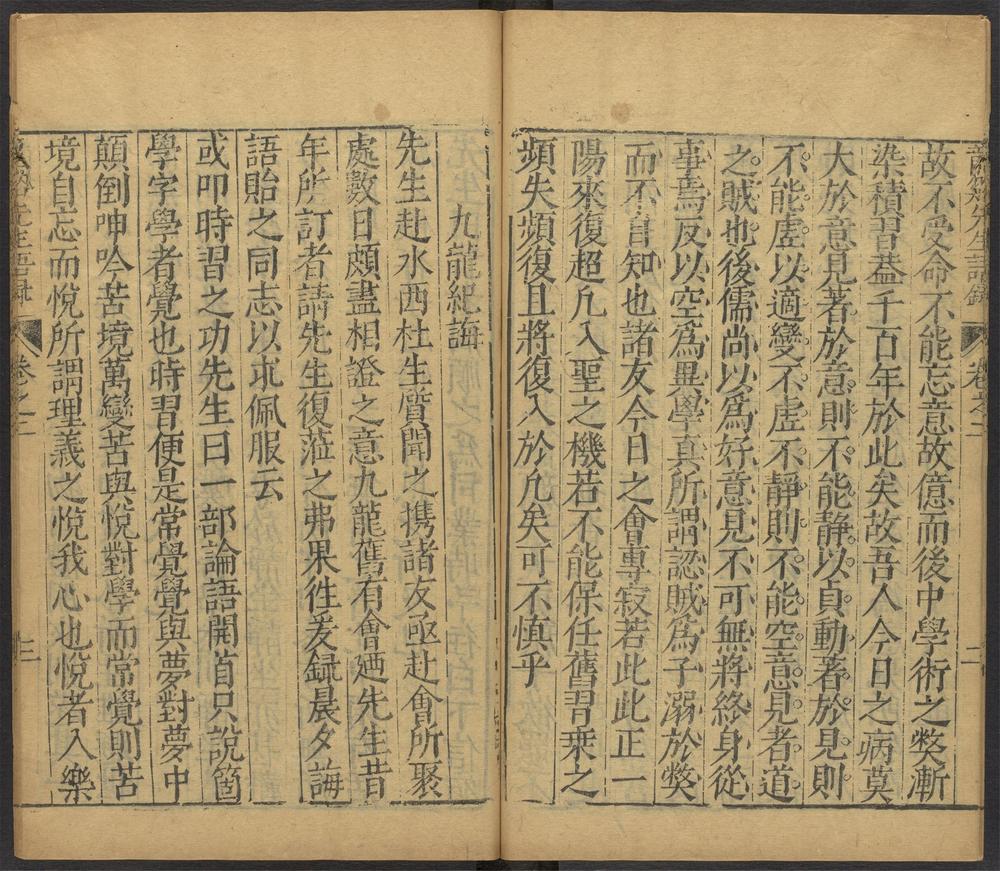 故不受命不能忘意故億而後中學術之獘漸
染積習葢千百年於此矣故吾人今日之病莫
大於意見著於意則不能静以貞動著於見則
不能虛以適變不虛不靜則不能空意見者道
之賊也後儒尚以為好意見不可無將終身從
事焉反以空爲異學真所謂認賊爲子溺於獘
而不自知也諸友今日之會專寂若此此正一
陽來復超凡入聖之機若不能保任舊習乗之
頻失頻復且將復入於凡矣可不慎乎
九龍紀誨
先生赴水西杜生質聞之携諸友亟赴會所聚
處數日頗盡相證之意九龍舊有會廼先生昔
年所訂者請先生復蒞之弗果徃爰録晨夕誨
語貽之同志以求佩服云
或叩時習之功先生曰一部論語開首只說箇
學字學者覺也時習便是常覺覺與夢對夢中
顛倒呻吟苦境萬變苦與悅對學而常覺則苦
境自忘而悅所謂理義之悅我心也悅者入樂
卷之二
二
卷之二
三